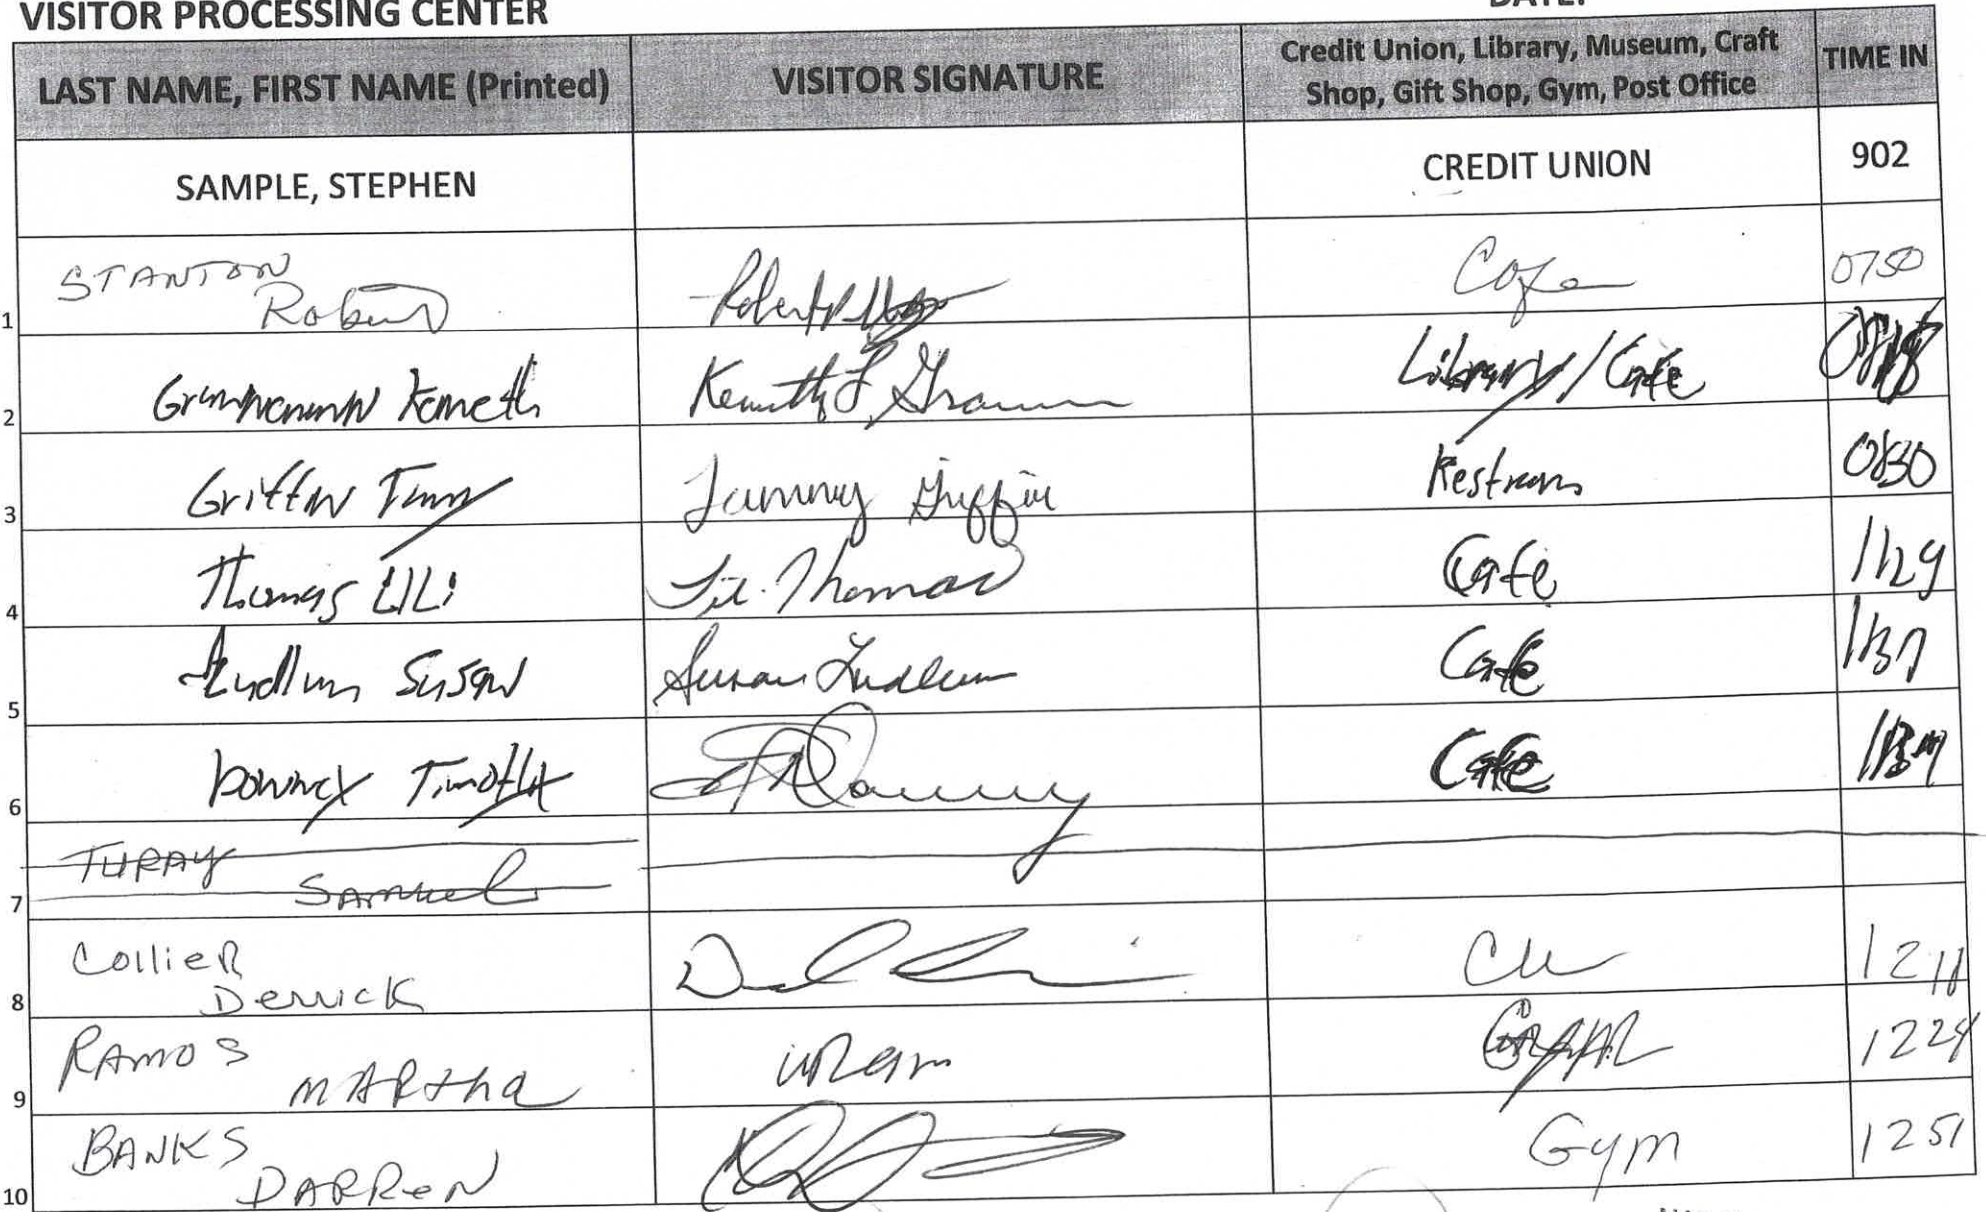 VISITOR PROCESSING CENTER
DATE:
LAST NAME, FIRST NAME (Printed) VISITOR SIGNATURE Credit Union, Library, Museum, Craft Shop, Gift Shop, Gym, Post Office TIME IN
SAMPLE, STEPHEN CREDIT UNION 902
STANTON
Robert Robert Cafe 0750
1
Kenneth Kenneth L Library/Cafe
2
Griffin Tammy Tammy Griffin 0830
3
Thomas Lili Thomas Cafe 1129
4
Ludlum Susan Susan Ludlum Cafe 1137
5
Downey Timothy Downey Cafe
6
TURAY
Samuel
7
Collier
Derrick CU
8
RAMOS
MARtha 1224
9
BANKS
DARReN Gym 1251
10